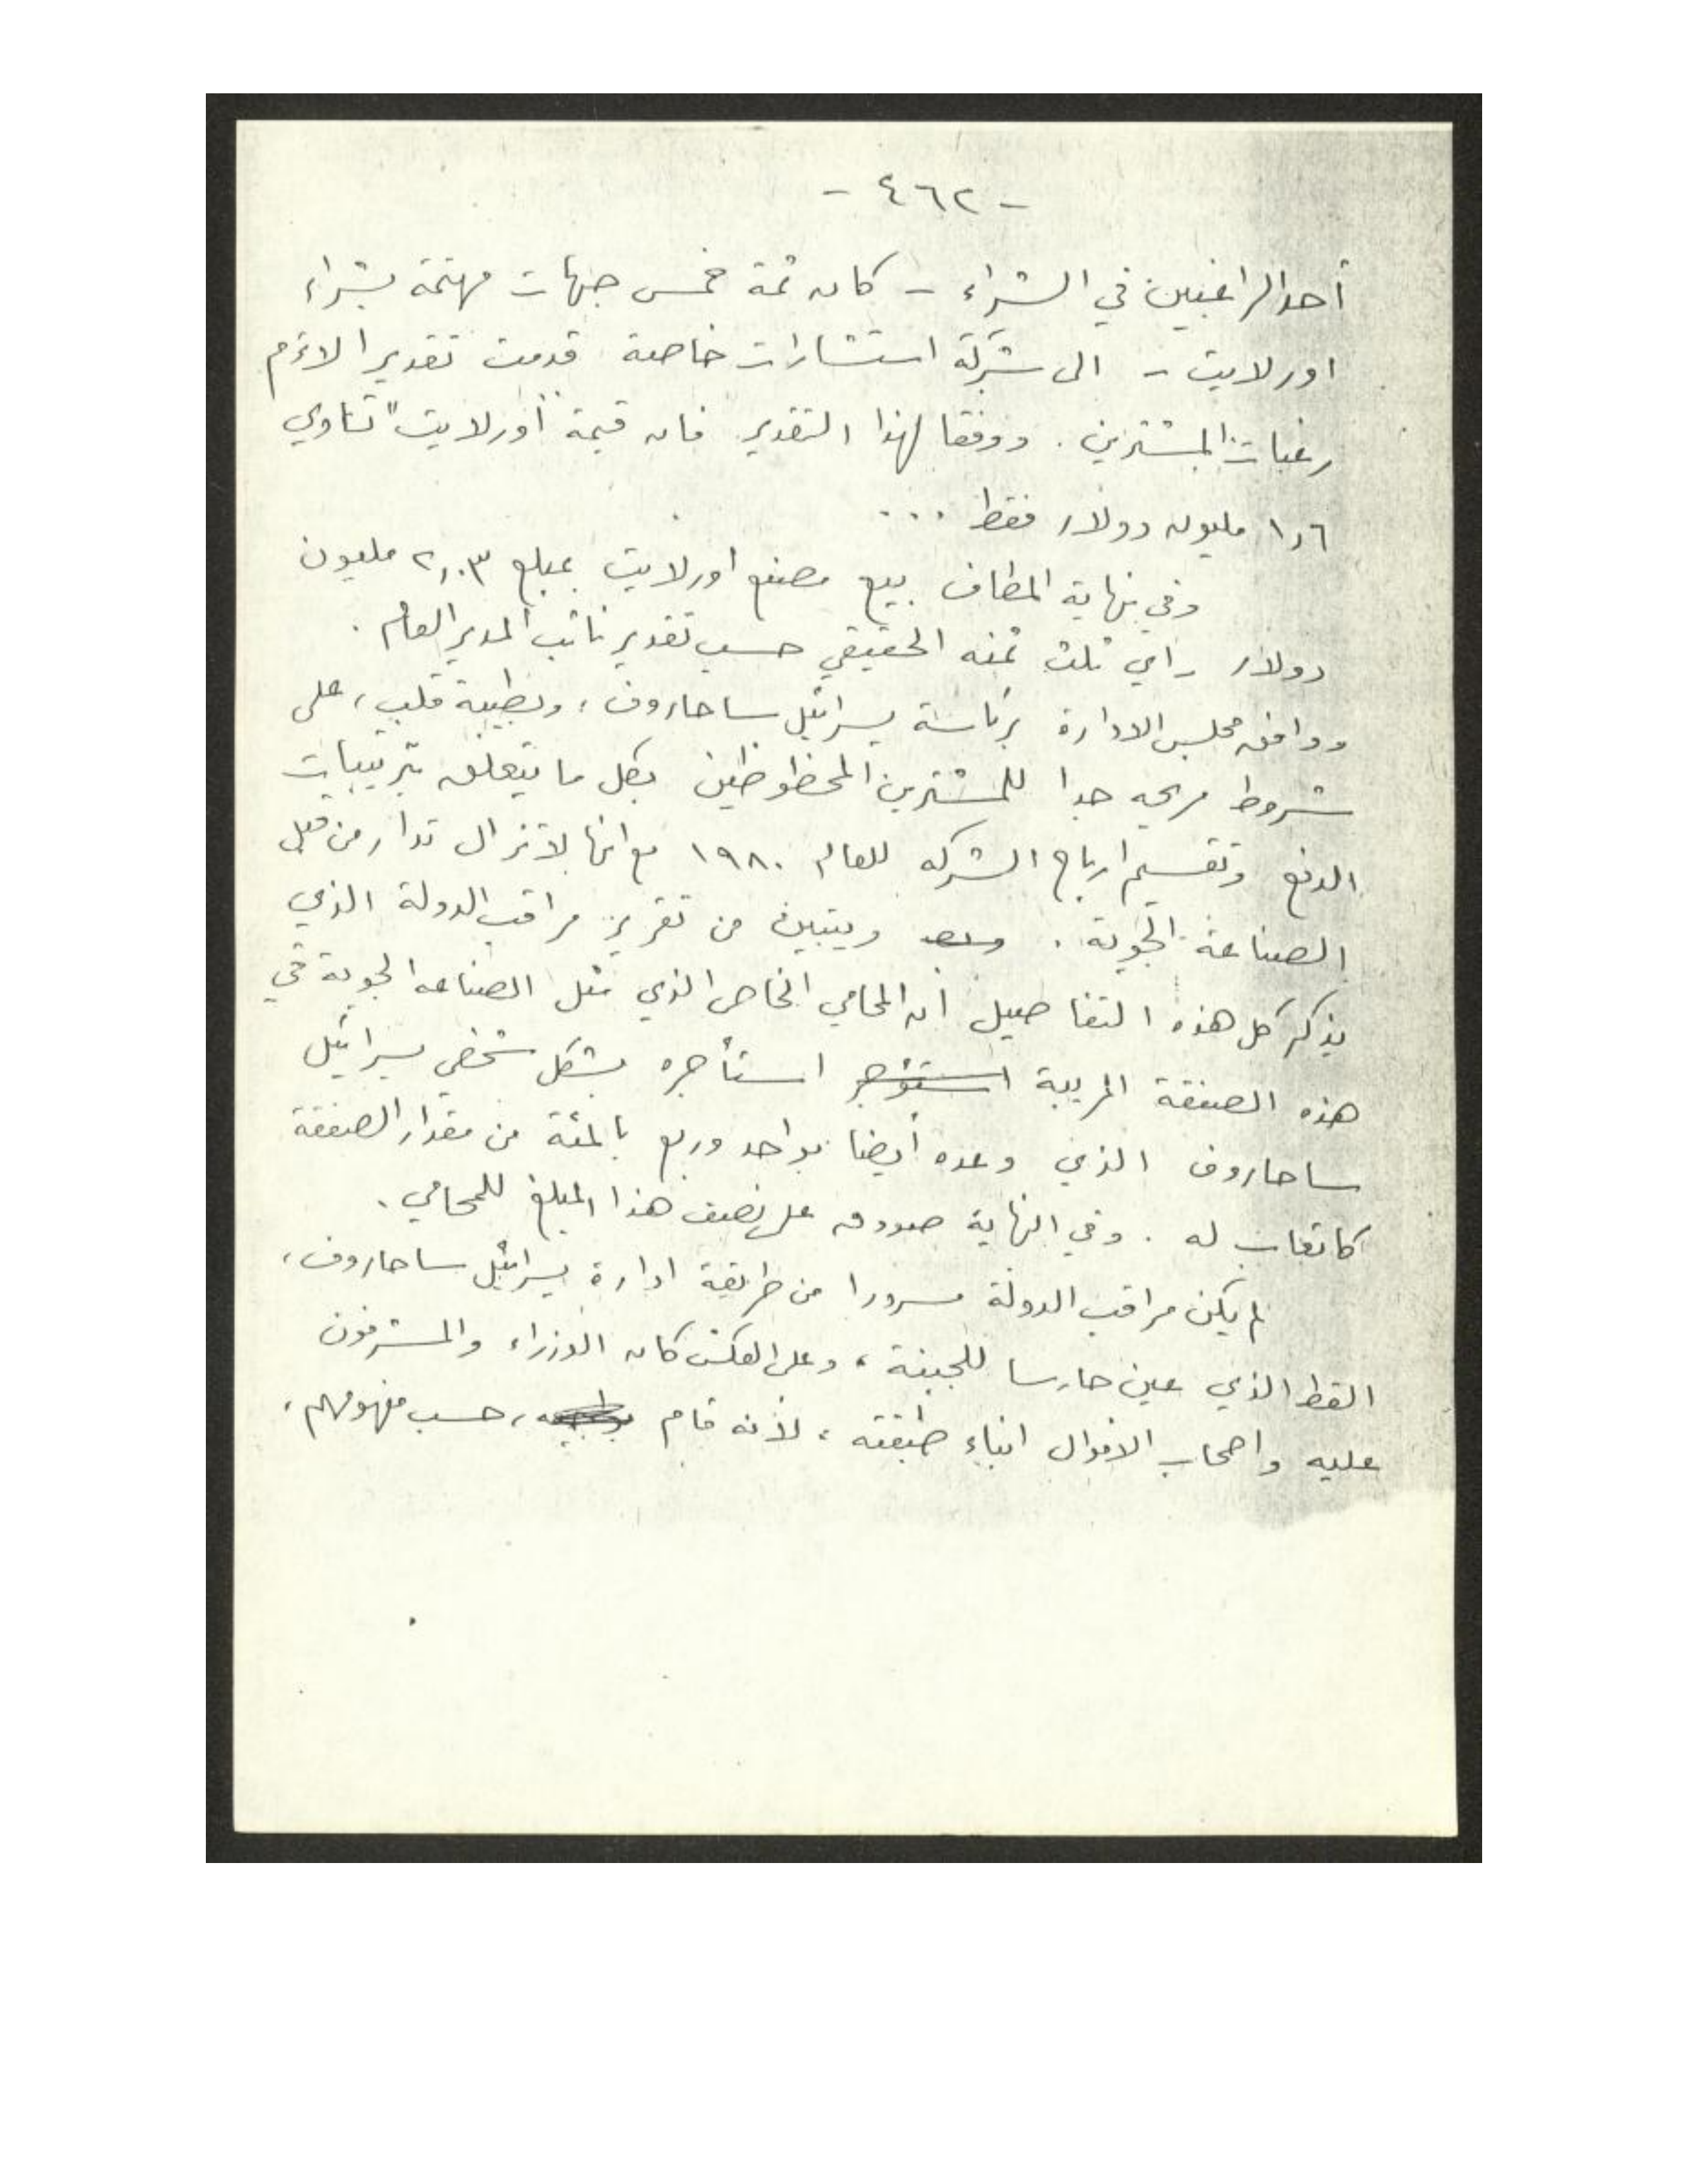 - ٤٦٢ -
أحد الراغبين في الشراء - كان ثمة خمس جهات مهتمة بشراء
اورلايت - الى شركة استشارات خاصة قدمت تقديرا لاءم
رغبات المشترين . ووفقا لهذا التقدير فان قيمة "أورلايت" تساوي
١,٦ مليون دولار فقط ...
وفي نهاية المطاف بيع مصنع اورلايت بمبلغ ٢,٠٣ مليون
دولار - اي ثلث ثمنه الحقيقي حسب تقدير نائب المدير العام .
ووافق مجلس الادارة برئاسة يسرائيل ساحاروف ، وبطيبة قلب ، على
شروط مريحه جدا للمشترين المحظوظين بكل ما يتعلق بترتيبات
الدفع وتقسيم ارباح الشركه للعام ١٩٨٠ مع انها لاتزال تدار من قبل
الصناعة الجوية . ويتبين من تقرير مراقب الدولة الذي
يذكر كل هذه التفاصيل أن المحامي الخاص الذي مثل الصناعه الجوية في
هذه الصفقة المريبة استؤجر استأجره بشكل شخصي يسرائيل
ساحاروف الذي وعده أيضا بواحد وربع بالمئة من مقدار الصفقة
كاتعاب له . وفي النهاية صودق على نصف هذا المبلغ للمحامي .
لم يكن مراقب الدولة مسرورا من طريقة ادارة يسرائيل ساحاروف ،
القط الذي عين حارسا للجبنة ، وعلى العكس كان الوزراء والمشرفون
عليه واصحاب الاموال ابناء طبقته ، لأنه قام ، حسب مفهومهم ،